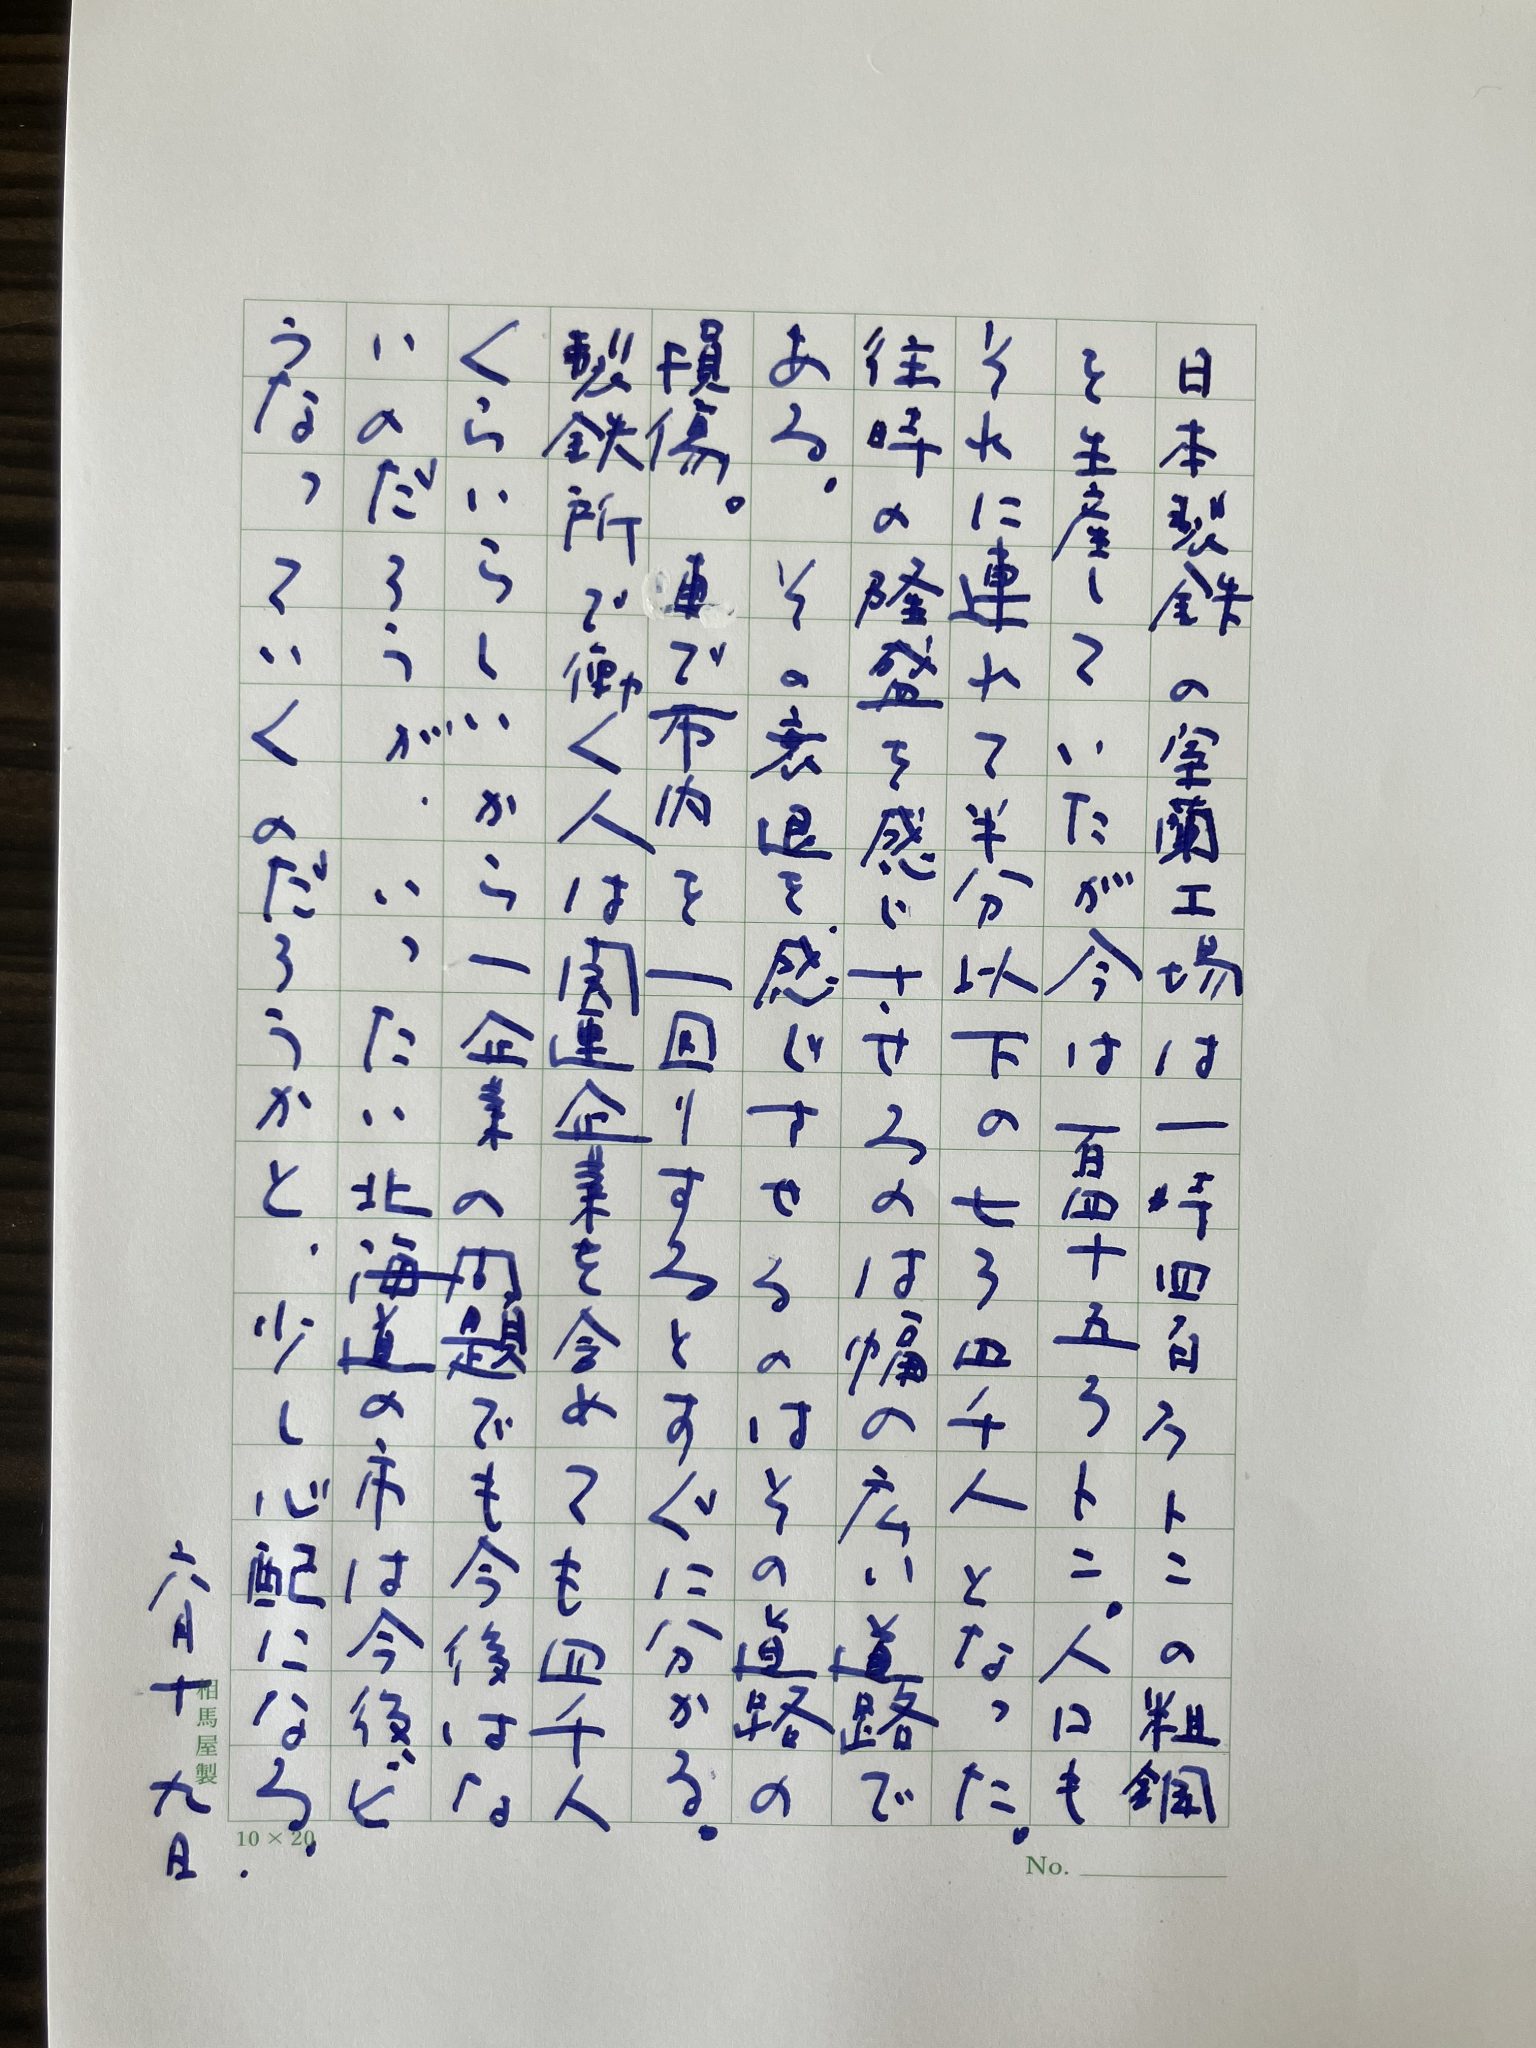 日本製鉄の室蘭工場は一時四百万トンの粗鋼
を生産していたが今は百四十五万トン。人口も
それに連れて半分以下の七万四千人となった。
往時の隆盛を感じさせるのは幅の広い道路で
ある。その衰退を感じさせるのはその道路の
損傷。車で市内を一回りするとすぐに分かる。
製鉄所で働く人は関連企業を含めても四千人
くらいらしいから一企業の問題でも今後はな
いのだろうが、いったい北海道の市は今後ど
うなっていくのだろうかと、少し心配になる。
六月十九日.
相馬屋製
10 × 20
No.